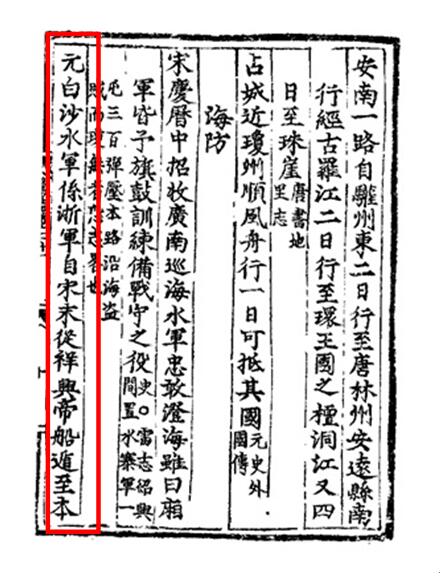 安南一路自驩州東二日行至唐林州安遠縣南
行經古羅江二日行至環王國之檀洞江又四
日至珠崖唐書地里志
占城近瓊州順風舟行一日可抵其國元史外國傳
海防
宋慶曆中招收廣南巡海水軍忠敢澄海雖曰廂
軍皆予旗鼓訓練備戰守之役史○雷志紹興間置水寨軍一
屯三百彈壓本路沿海盜賊而瓊無考恐志畧也
元白沙水軍係浙軍自宋末從祥興帝船遁至本